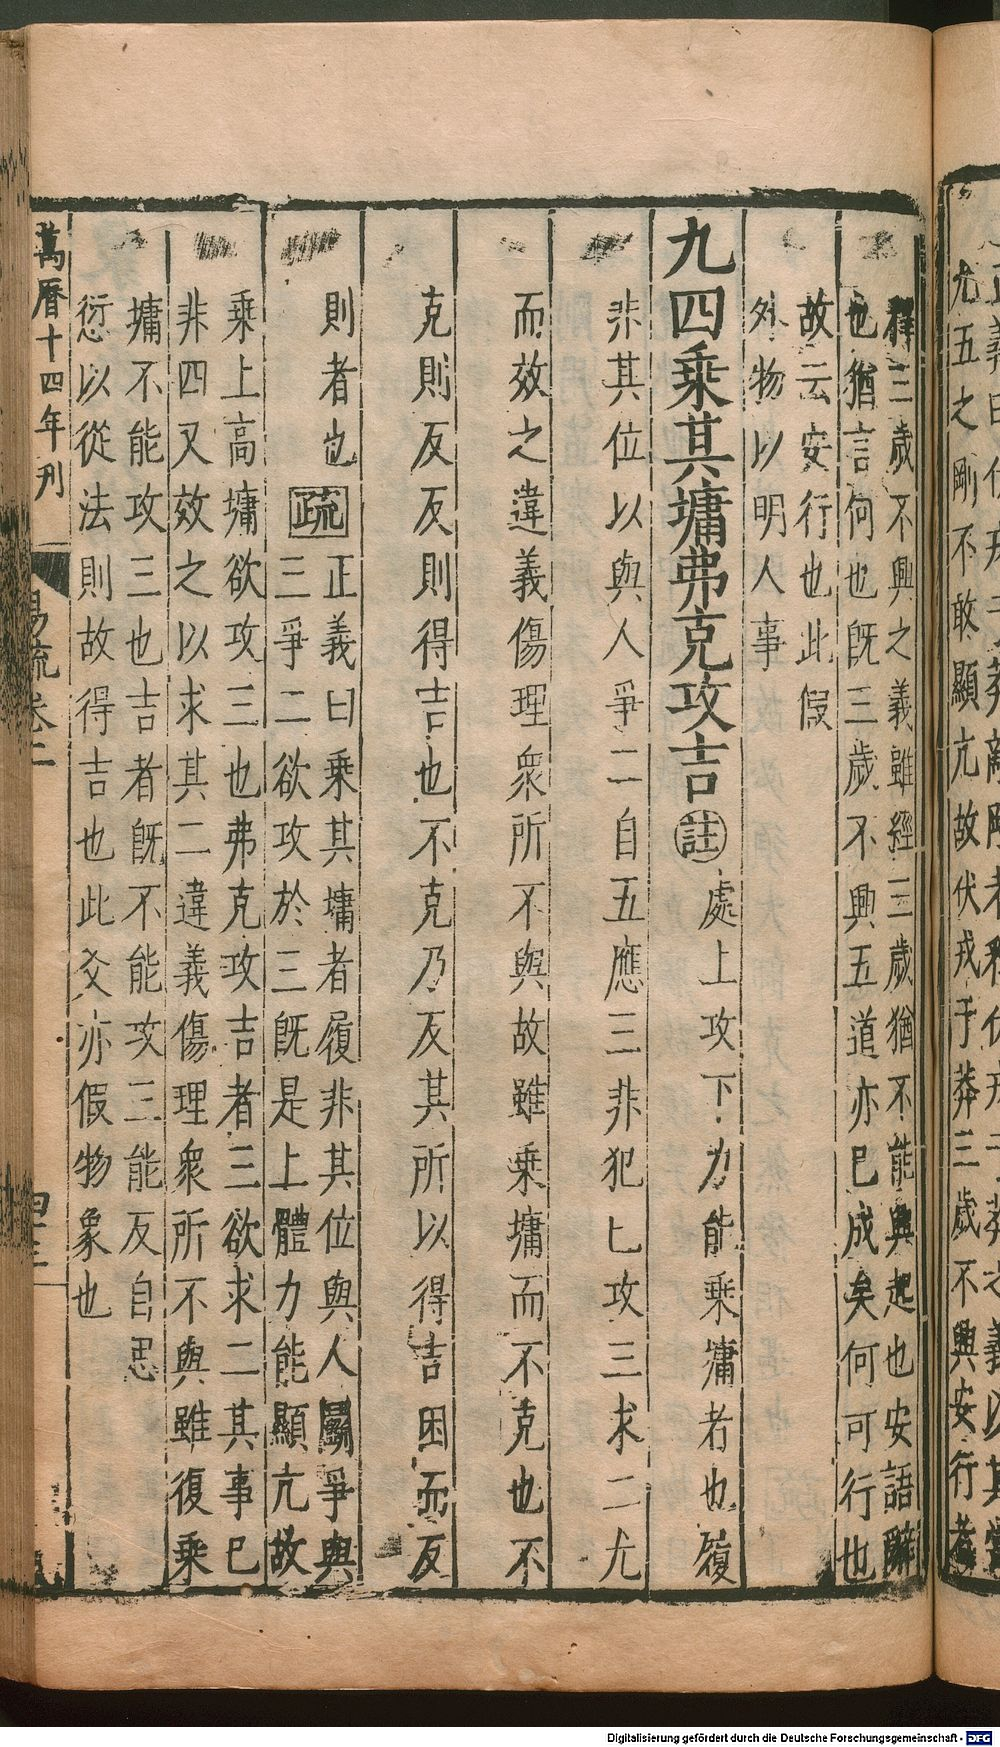 九五之剛不敢顯亢故伏戎于莽三歲不興安行者
釋三歲不興之義雖經三歲猶不能興起也安語辭
也猶言何也旣三歲不興五道亦巳成矣何可行也
故云安行也此假
外物以明人事
九四乘其墉弗克攻吉註處上攻下力能乘墉者也履
非其位以與人爭二自五應三非犯匕攻三求二尤
而效之違義傷理衆所不與故雖乘墉而不克也不
克則反反則得吉也不克乃反其所以得吉困而反
則者也疏正義曰乘其墉者履非其位與人鬬爭與
三爭二欲攻於三旣是上體力能顯亢故
乘上高墉欲攻三也弗克攻吉者三欲求二其事巳
非四又效之以求其二違義傷理衆所不與雖復乘
墉不能攻三也吉者旣不能攻三能反自思
愆以從法則故得吉也此爻亦假物象也
萬曆十四年刋
易疏卷二
四十三
Digitalisierung gefördert durch die Deutsche Forschungsgemeinschaft - DFG